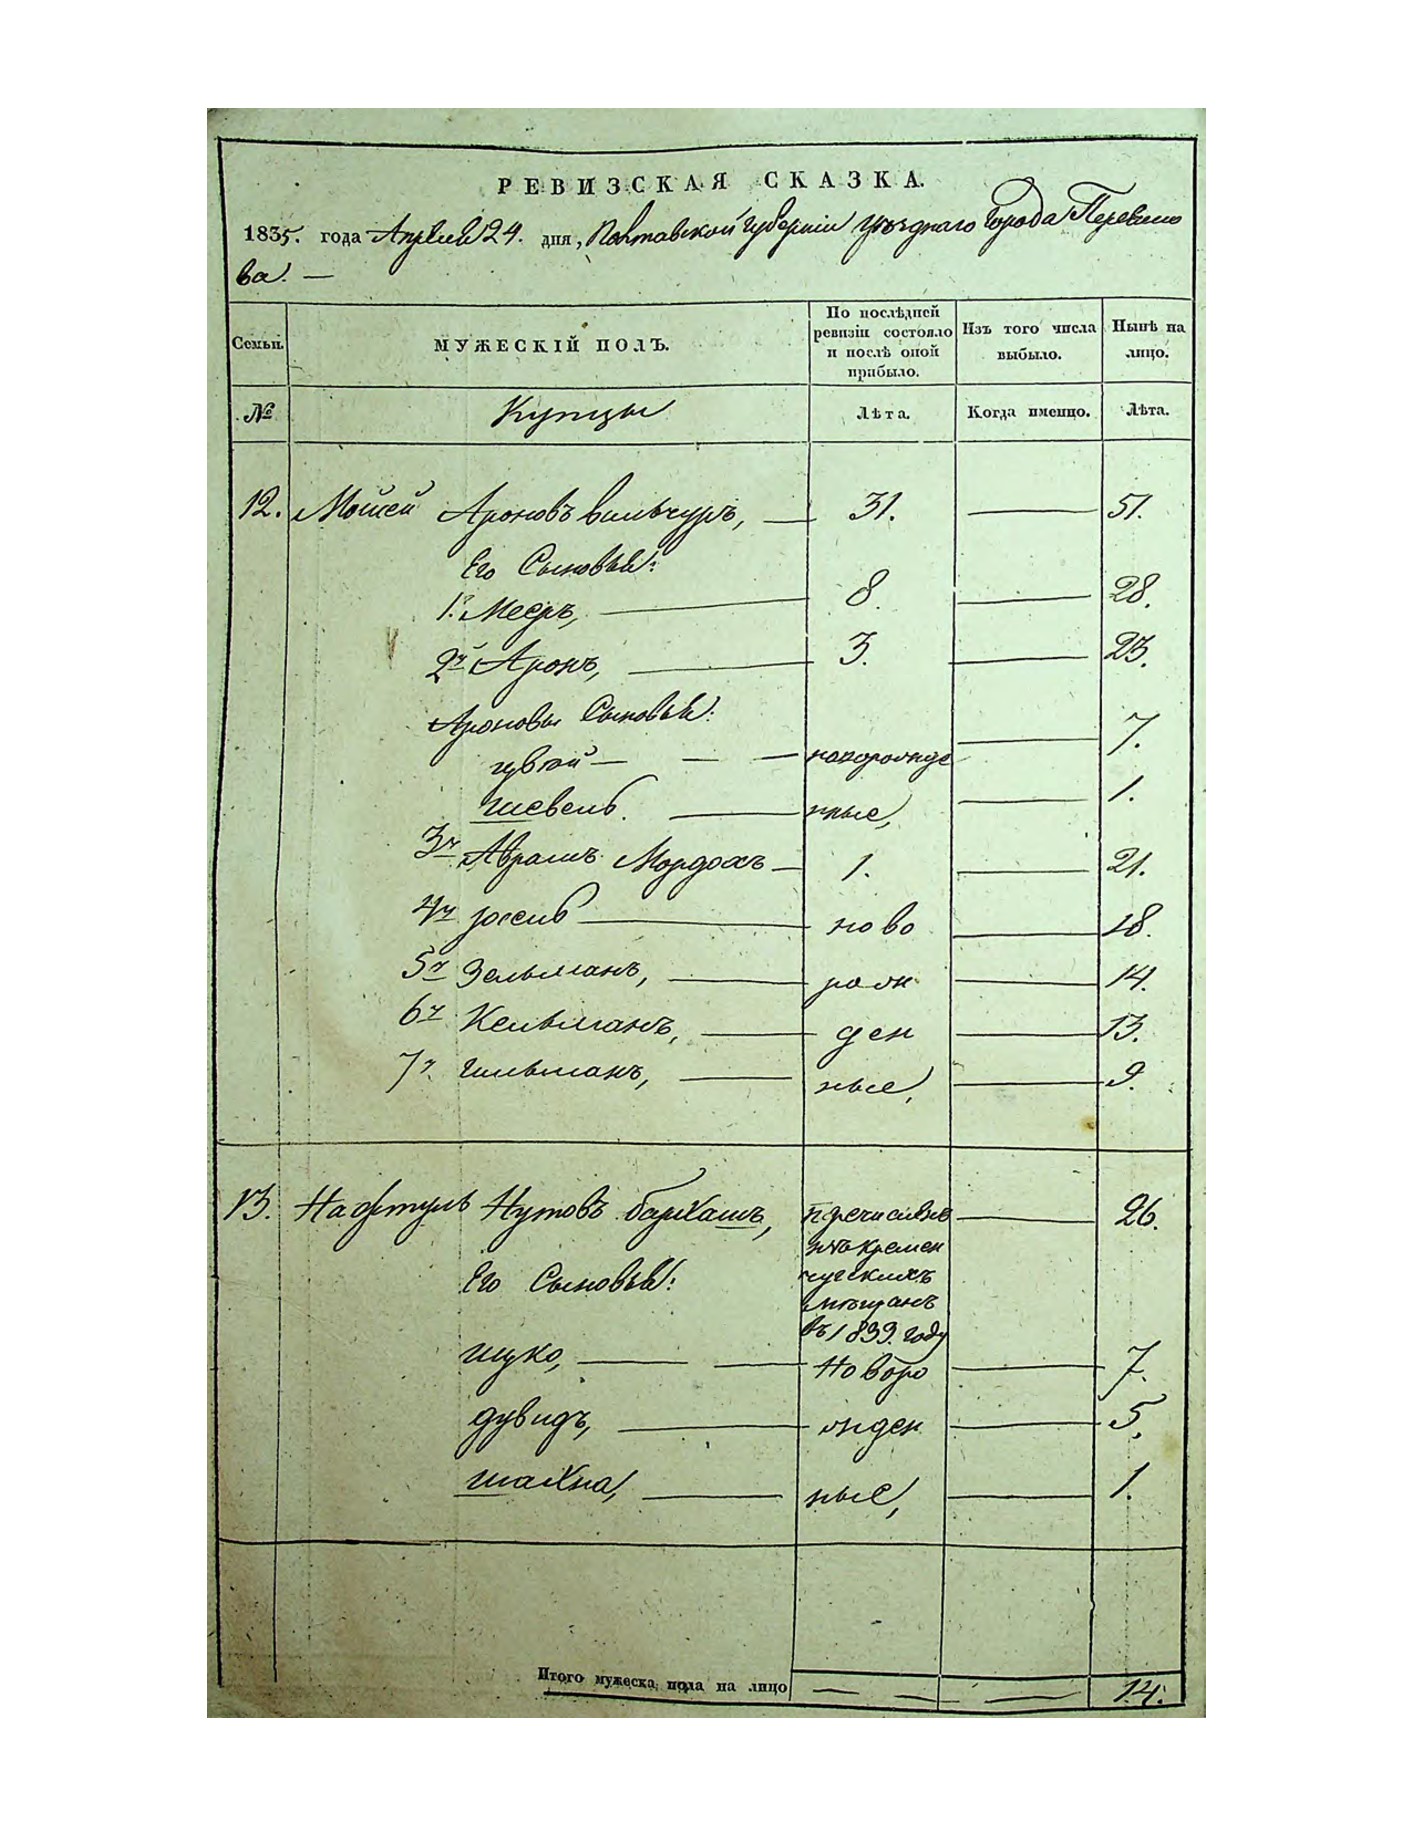 РЕВИЗСКАЯ СКАЗКА.
1835. года Апреля 24. дня, Полтавской губернии уѣзднаго Города Переясло
ва. —
Семьи. МУЖЕСКІЙ ПОЛЪ. По послѣдней ревизіи состояло и послѣ оной прибыло. Изъ того числа выбыло. Нынѣ на лицо.
№ Купцы Лѣта. Когда именно. Лѣта.
12. Мошей Ароновъ вильчуръ, — 31. — 51.
Его Сыновья:
1.й Мееръ, — 8. — 28.
2й Аронъ, — 3. — 23.
Ароновы Сыновья:
— — — новорожде — 7.
шевель. — нные, — 1.
3й Абрамъ Мордохъ — 1. — 21.
4й — ново — 18.
5й Зельманъ, — рож — 14.
6й Кельманъ, — ден — 13.
7й Гильманъ, — ные, — 9.
13. Нафтуль Нутовъ бархашъ, перечисленъ — 26.
изъ кремен
Его Сыновья: чугскихъ
мѣщанъ
въ 1839. году
шуко, — — Новоро — 7.
дувидъ, — жден — 5.
шахна, — ные, — 1.
Итого мужеска пола на лицо — — — 14.